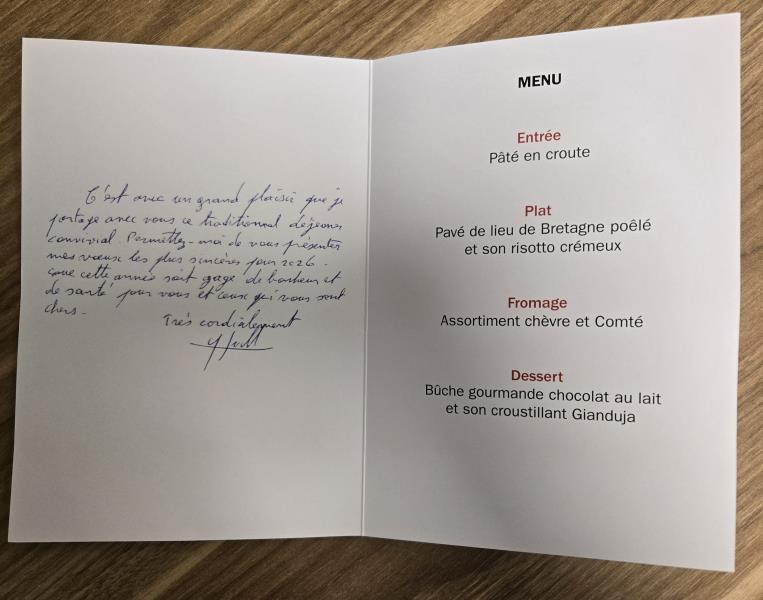 C'est avec un grand plaisir que je
partage avec vous ce traditionnel déjeuner
convivial. Permettez-moi de vous présenter
mes vœux les plus sincères pour 2026.
Que cette année soit gage de bonheur et
de santé pour vous et ceux qui vous sont
chers.
Très cordialement
MENU
Entrée
Pâté en croute
Plat
Pavé de lieu de Bretagne poêlé
et son risotto crémeux
Fromage
Assortiment chèvre et Comté
Dessert
Bûche gourmande chocolat au lait
et son croustillant Gianduja